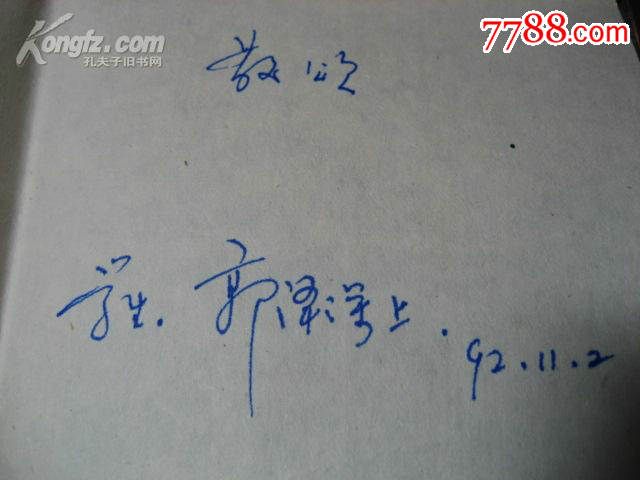 Kongfz.com
孔夫子旧书网
7788.com
敬颂
学生. 郭泽溥上.
92.11.2